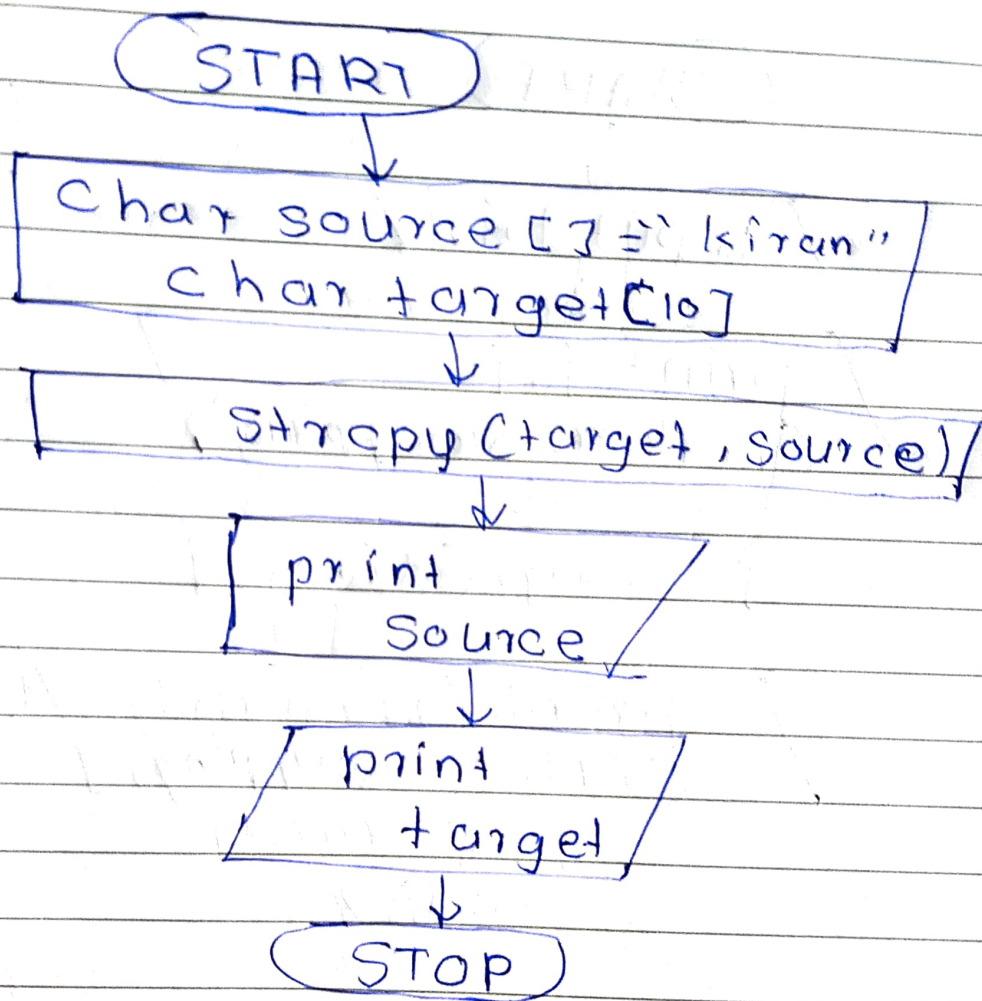 START
Char source [ ] = "kiran"
Char target[10]
Strcpy (target, source)
print
Source
print
target
STOP